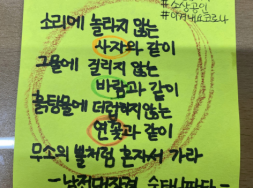 #소상공인
#이겨내요코로나
소리에 놀라지 않는
사자와 같이
그물에 걸리지 않는
바람과 같이
흙탕물에 더럽히지않는
연꽃과 같이
무소의 뿔처럼 혼자서 가라
- 남전대장경 숫타니파타 -